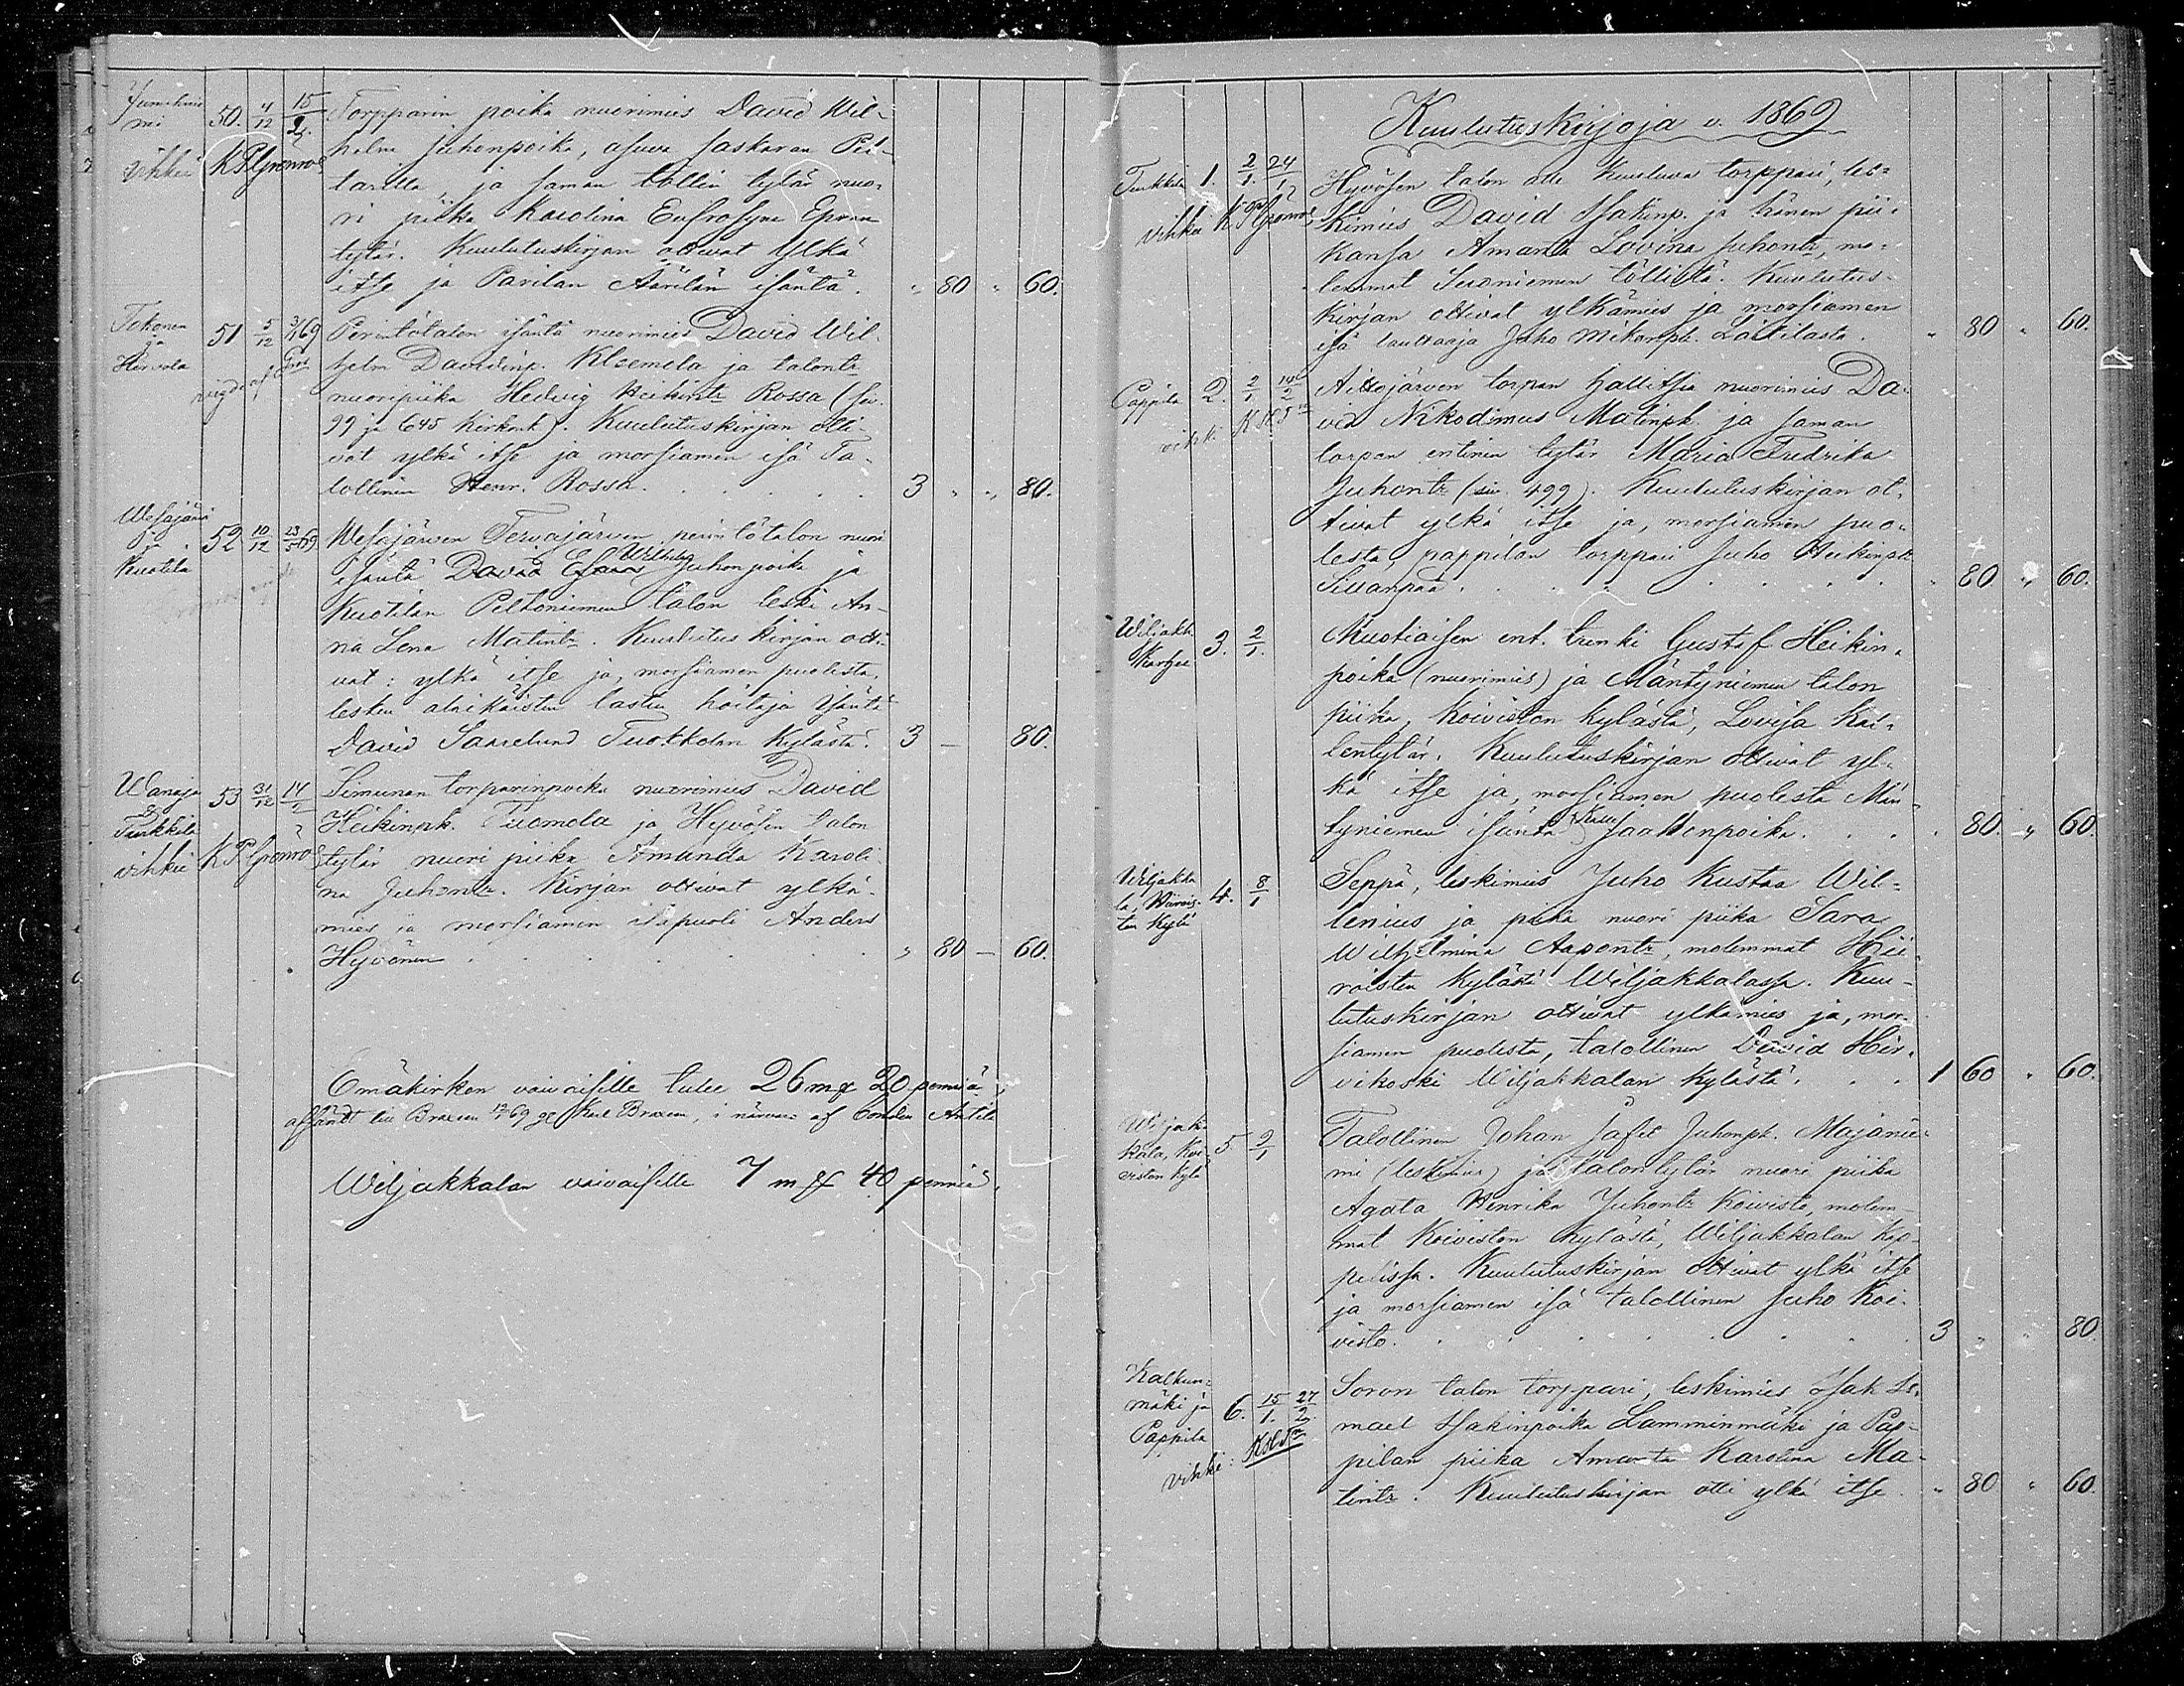 50. 4/12 15/2. Torpparin poika nuorimies David Wil-
helm Juhonpoika, asuva Jaskaran Pie-
tarilla, ja saman tollin tytär nuo-
vihkii K P Grönroos
ri piika Karolina Eufrosyne Epran
tytär. Kuulutuskirjan ottivat Ylkä
itse ja Parilan Äärilän isäntä. " 80 " 60.
Hirvola
51 5/12 3/1 69 Perintötalon isäntä nuorimies David Wil-
helm Davidinp. Kleemola ja talontr
nuoripiika Hedvig Heikintr Rossa (siv.
99 ja 645 Kirkonk). Kuulutuskirjan otti-
vat ylkä itse ja morsiamen isä Ta-
lollinen Henr. Rossa. 3 " " 80.
Wesajärvi
ja
Kuotila
52 10/12 23/5 69 Wesajärven Tervajärven perintötalon nuori
isäntä David Wilhelm Juhonpoika ja
Kuotilan Peltoniemen talon leski An-
na Lena Matintr. Kuulutuskirjan otti-
vat: ylkä itse ja, morsiamen puolesta,
lesken alaikäisten lasten hoitaja Isäntä
David Saarelund Tuokkolan Kylästä. 3 — 80.
Wanaja
ja
Turkkila
53 31/12 14/1 Simunan torparinpoika nuorimies David
Heikinpk. Tuomola ja Hyvösen talon
vihkii K P Grönroos
tytär nuori piika Amanda Karoli-
na Juhontr. Kirjan ottivat ylkä-
mies ja morsiamen isäpuoli Anders
Hyvönen " 80 — 60.
Emäkirkon vaivaisille tulee 26 mk 20 penniä
Wiljakkalan vaivaisille 7 mk 40 penniä.
Kuulutuskirjoja v. 1869
Turkkila 1. 2/1. 24/1 Hyvösen talon alle kuuluva torppari, les-
vihkii K P Grönroos
kimies David Isakinp. ja hänen pii-
kansa Amanda Lovina Juhontr, mo-
lemmat Suoniemen töllistä. Kuulutus-
kirjan ottivat ylkämies ja morsiamen
isä lauttaaja Juho Mikonpk. Laitilasta. " 80 " 60.
Pappila 2. 2/1 14/2 Aittojärven torpan hallitsia nuorimies Da-
vihki
vid Nikodimus Matinpk. ja saman
torpan entinen tytär Maria Fredrika
Juhontr (siv. 499). Kuulutuskirjan ot-
tivat ylkä itse ja, morsiamen puo-
lesta, pappilan torppari Juho Heikinpk
Sillanpää. " 80. " 60.
3. 2/1. Muotiaisen ent. trenki Gustaf Heikin-
poika (nuorimies) ja Mäntyniemen talon
piika, Koiviston kylästä, Lovisa Kai-
lentytär. Kuulutuskirjan ottivat yl-
kä itse ja, morsiamen puolesta Män-
tyniemen isäntä Kalle Jaakkonpoika. 80. " 60.
Wiljakka
4. 8/1 Seppä, leskimies Juho Kustaa Wil-
lenius ja piika nuori piika Sara
Wilhelmina Aapontr, molemmat Hii-
roisten kylästä Wiljakkalassa. Kuu-
lutuskirjan ottivat ylkämies ja, mor-
siamen puolesta, talollinen David Hir-
vikoski Wiljakkalan kylästä. 1 60 " 60.
Wiljak-
kala, Koi-
viston kylä
5. 9/1 Talollinen Johan Jafet Juhonpk. Majanie-
mi (leskimies) ja talontytär nuori piika
Agata Henrika Juhontr Koivisto, molem-
mat Koiviston kylästä, Wiljakkalan kap-
pelissa. Kuulutuskirjan ottivat ylkä itse
ja morsiamen isä talollinen Juho Koi-
visto. 3 " " 80.
Kalkun-
mäki ja
Pappila
6. 15/1. 27/2. Soron talon torppari, leskimies Isak Is-
vihki:
mael Isakinpoika Lamminmäki ja Pap-
pilan piika Amanta Karolina Ma-
tintr. Kuulutuskirjan otti ylkä itse. " 80 " 60.